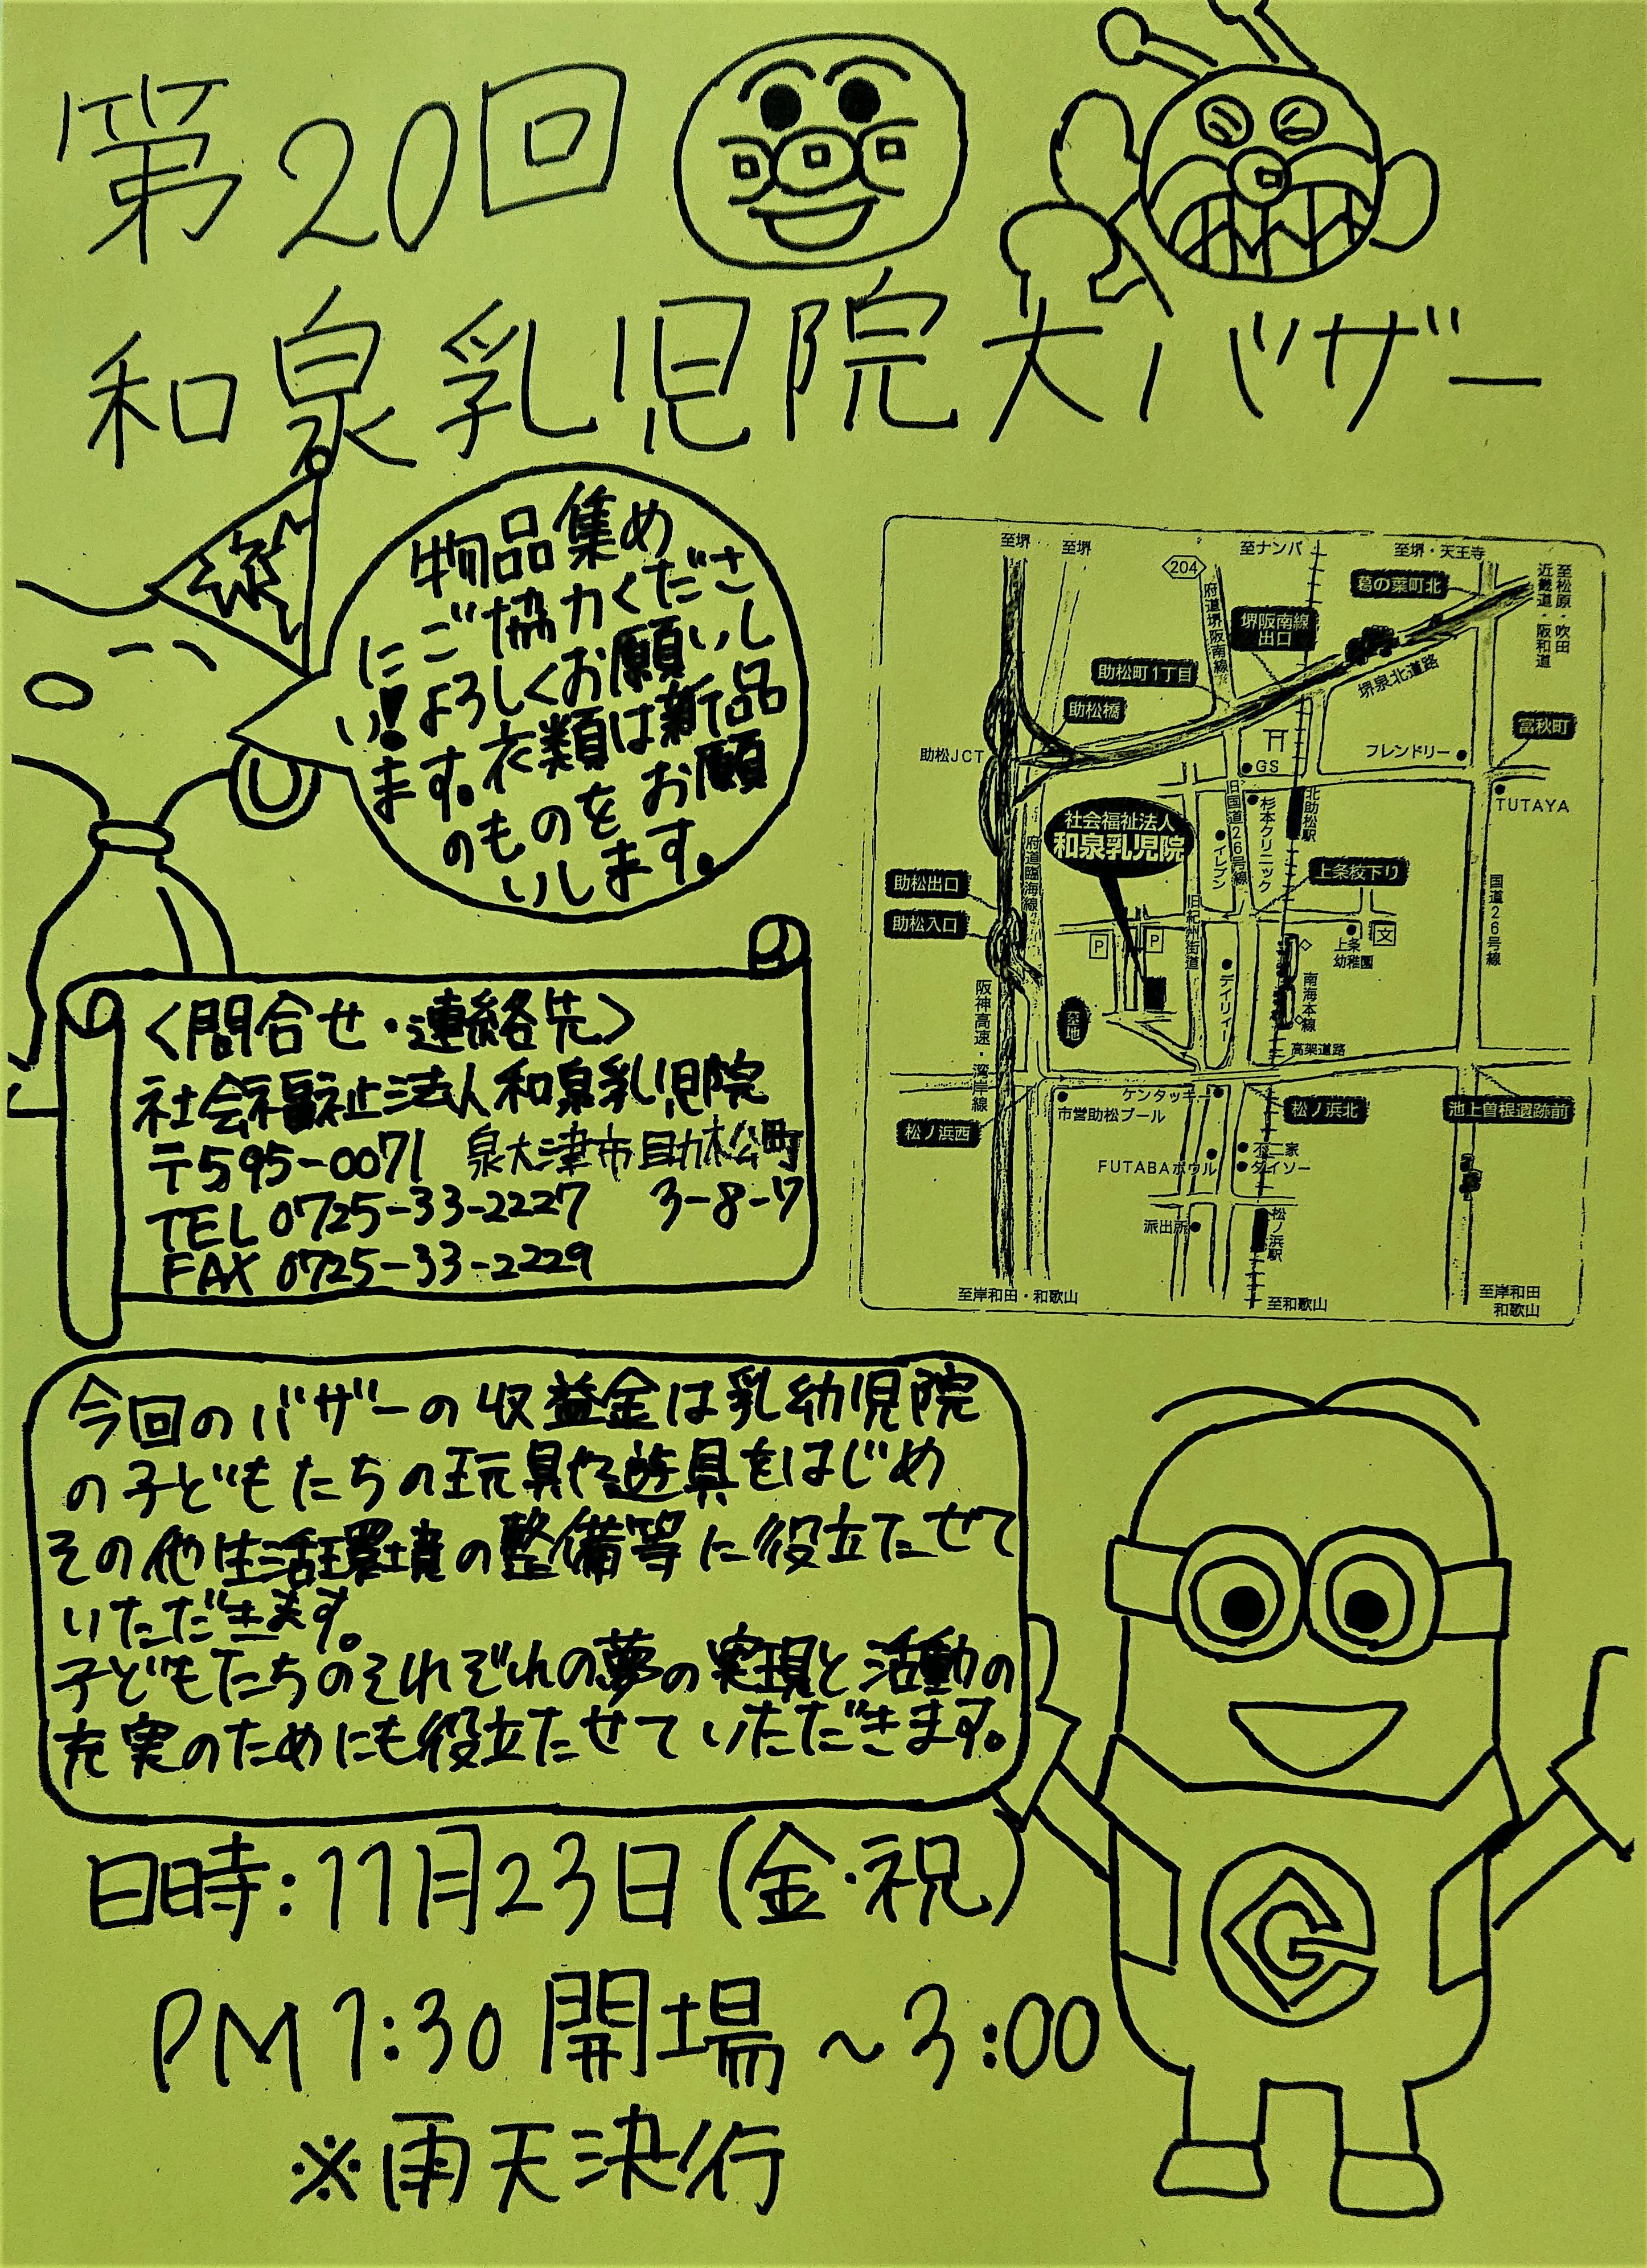 第20回
和泉乳児院大バザー
物品集め
にご協力くださ
い！よろしくお願いし
ます。衣類は新品
のものをお願
いします。
至堺
至堺
204
至ナンバ
至堺・天王寺
至松原・吹田
近畿道・阪和道
葛の葉町北
府道堺阪南線
堺阪南線
出口
堺泉北道路
助松町1丁目
助松橋
助松JCT
GS
フレンドリー
富秋町
TUTAYA
北助松駅
杉本クリニック
旧国道26号線
イレブン
社会福祉法人
和泉乳児院
府道臨海線
上条校下り
助松出口
助松入口
旧紀州街道
P
P
文
上条
幼稚園
国道26号線
デイリィー
南海本線
阪神高速・湾岸線
高架道路
ケンタッキー
市営助松プール
松ノ浜北
池上曽根遺跡前
松ノ浜西
不二家
FUTABAボウル
ダイソー
派出所
松ノ浜駅
至岸和田・和歌山
至和歌山
至岸和田
和歌山
<問合せ・連絡先>
社会福祉法人和泉乳児院
〒595-0071 泉大津市助松町
TEL 0725-33-2227 3-8-7
FAX 0725-33-2229
今回のバザーの収益金は乳幼児院
の子どもたちの玩具や遊具をはじめ
その他生活環境の整備等に役立たせて
いただきます。
子どもたちのそれぞれの夢の実現と活動の
充実のためにも役立たせていただきます。
日時:11月23日(金・祝)
PM1:30開場～3:00
※雨天決行
G